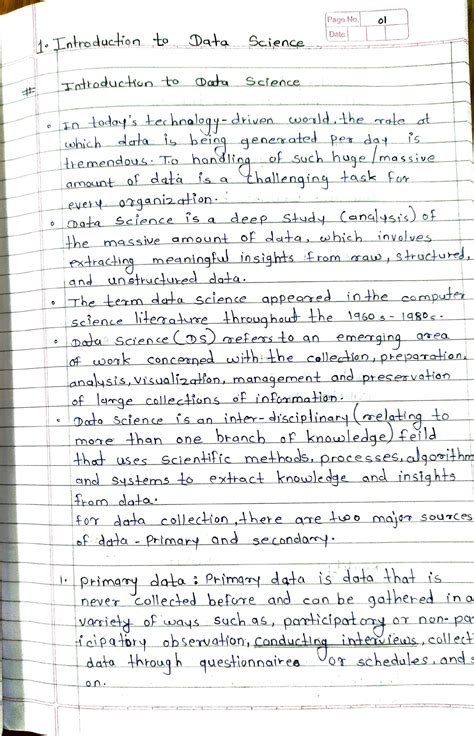 Page No. 01
Date
1. Introduction to Data Science
# Introduction to Data Science
• In today's technology-driven world, the rate at
which data is being generated per day is
tremendous. To handling of such huge/massive
amount of data is a challenging task for
every organization.
• Data Science is a deep study (analysis) of
the massive amount of data, which involves
extracting meaningful insights from raw, structured,
and unstructured data.
• The term data science appeared in the computer
science literature throughout the 1960s - 1980s.
• Data Science (DS) refers to an emerging area
of work concerned with the collection, preparation,
analysis, visualization, management and preservation
of large collections of information.
• Data Science is an inter-disciplinary (relating to
more than one branch of knowledge) feild
that uses scientific methods, processes, algorithm
and systems to extract knowledge and insights
from data.
for data collection, there are two major sources
of data - Primary and secondary.
1. Primary data : Primary data is data that is
never collected before and can be gathered in a
variety of ways such as, participatory or non-par
icipatory observation, conducting interviews, collect
data through questionnaires or schedules, and s
on.